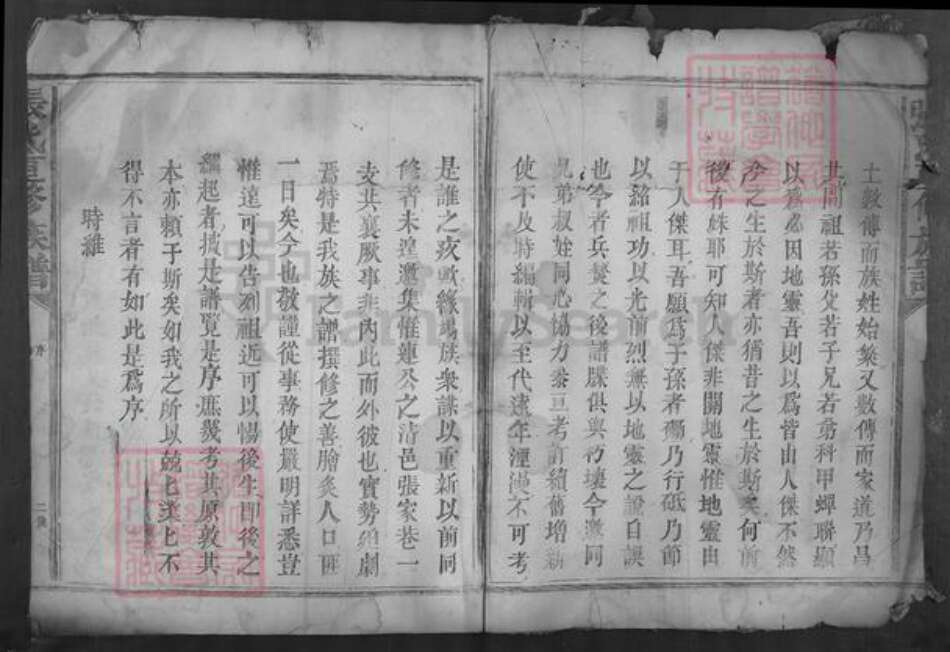 士數傳而族姓始蕃又數傳而家道乃昌
其間祖若孫父若子兄若弟科甲蟬聯顯
以爲必因地靈吾則以爲皆由人傑不然
今之生於斯者亦猶昔之生於斯矣何前
後有殊耶可知人傑非關地靈惟地靈由
于人傑耳吾願爲子孫者礪乃行砥乃節
以銘祖功以光前烈無以地靈之說自誤
也今者兵燹之後譜牒俱與朽壞今邀同
兄弟叔姪同心協力叅亘考訂續舊增新
使不及時編輯以至代遠年湮漫不可考
是誰之疚歟緣鳩族衆謀以重新以前同
修者未遑邀集惟連公之清邑張家巷一
支共襄厥事非內此而外彼也實勢須劇
焉特是我族之譜撰修之善膾炙人口匪
一日矣今也敬謹從事務使嚴明詳悉豈
惟遠可以告列祖近可以暢後生即後之
繼起者披是譜覽是序庶幾考其原敦其
本亦賴于斯矣如我之所以兢七業七不
得不言者有如此是爲序
時維
張氏重修族譜
序
FamilySearch